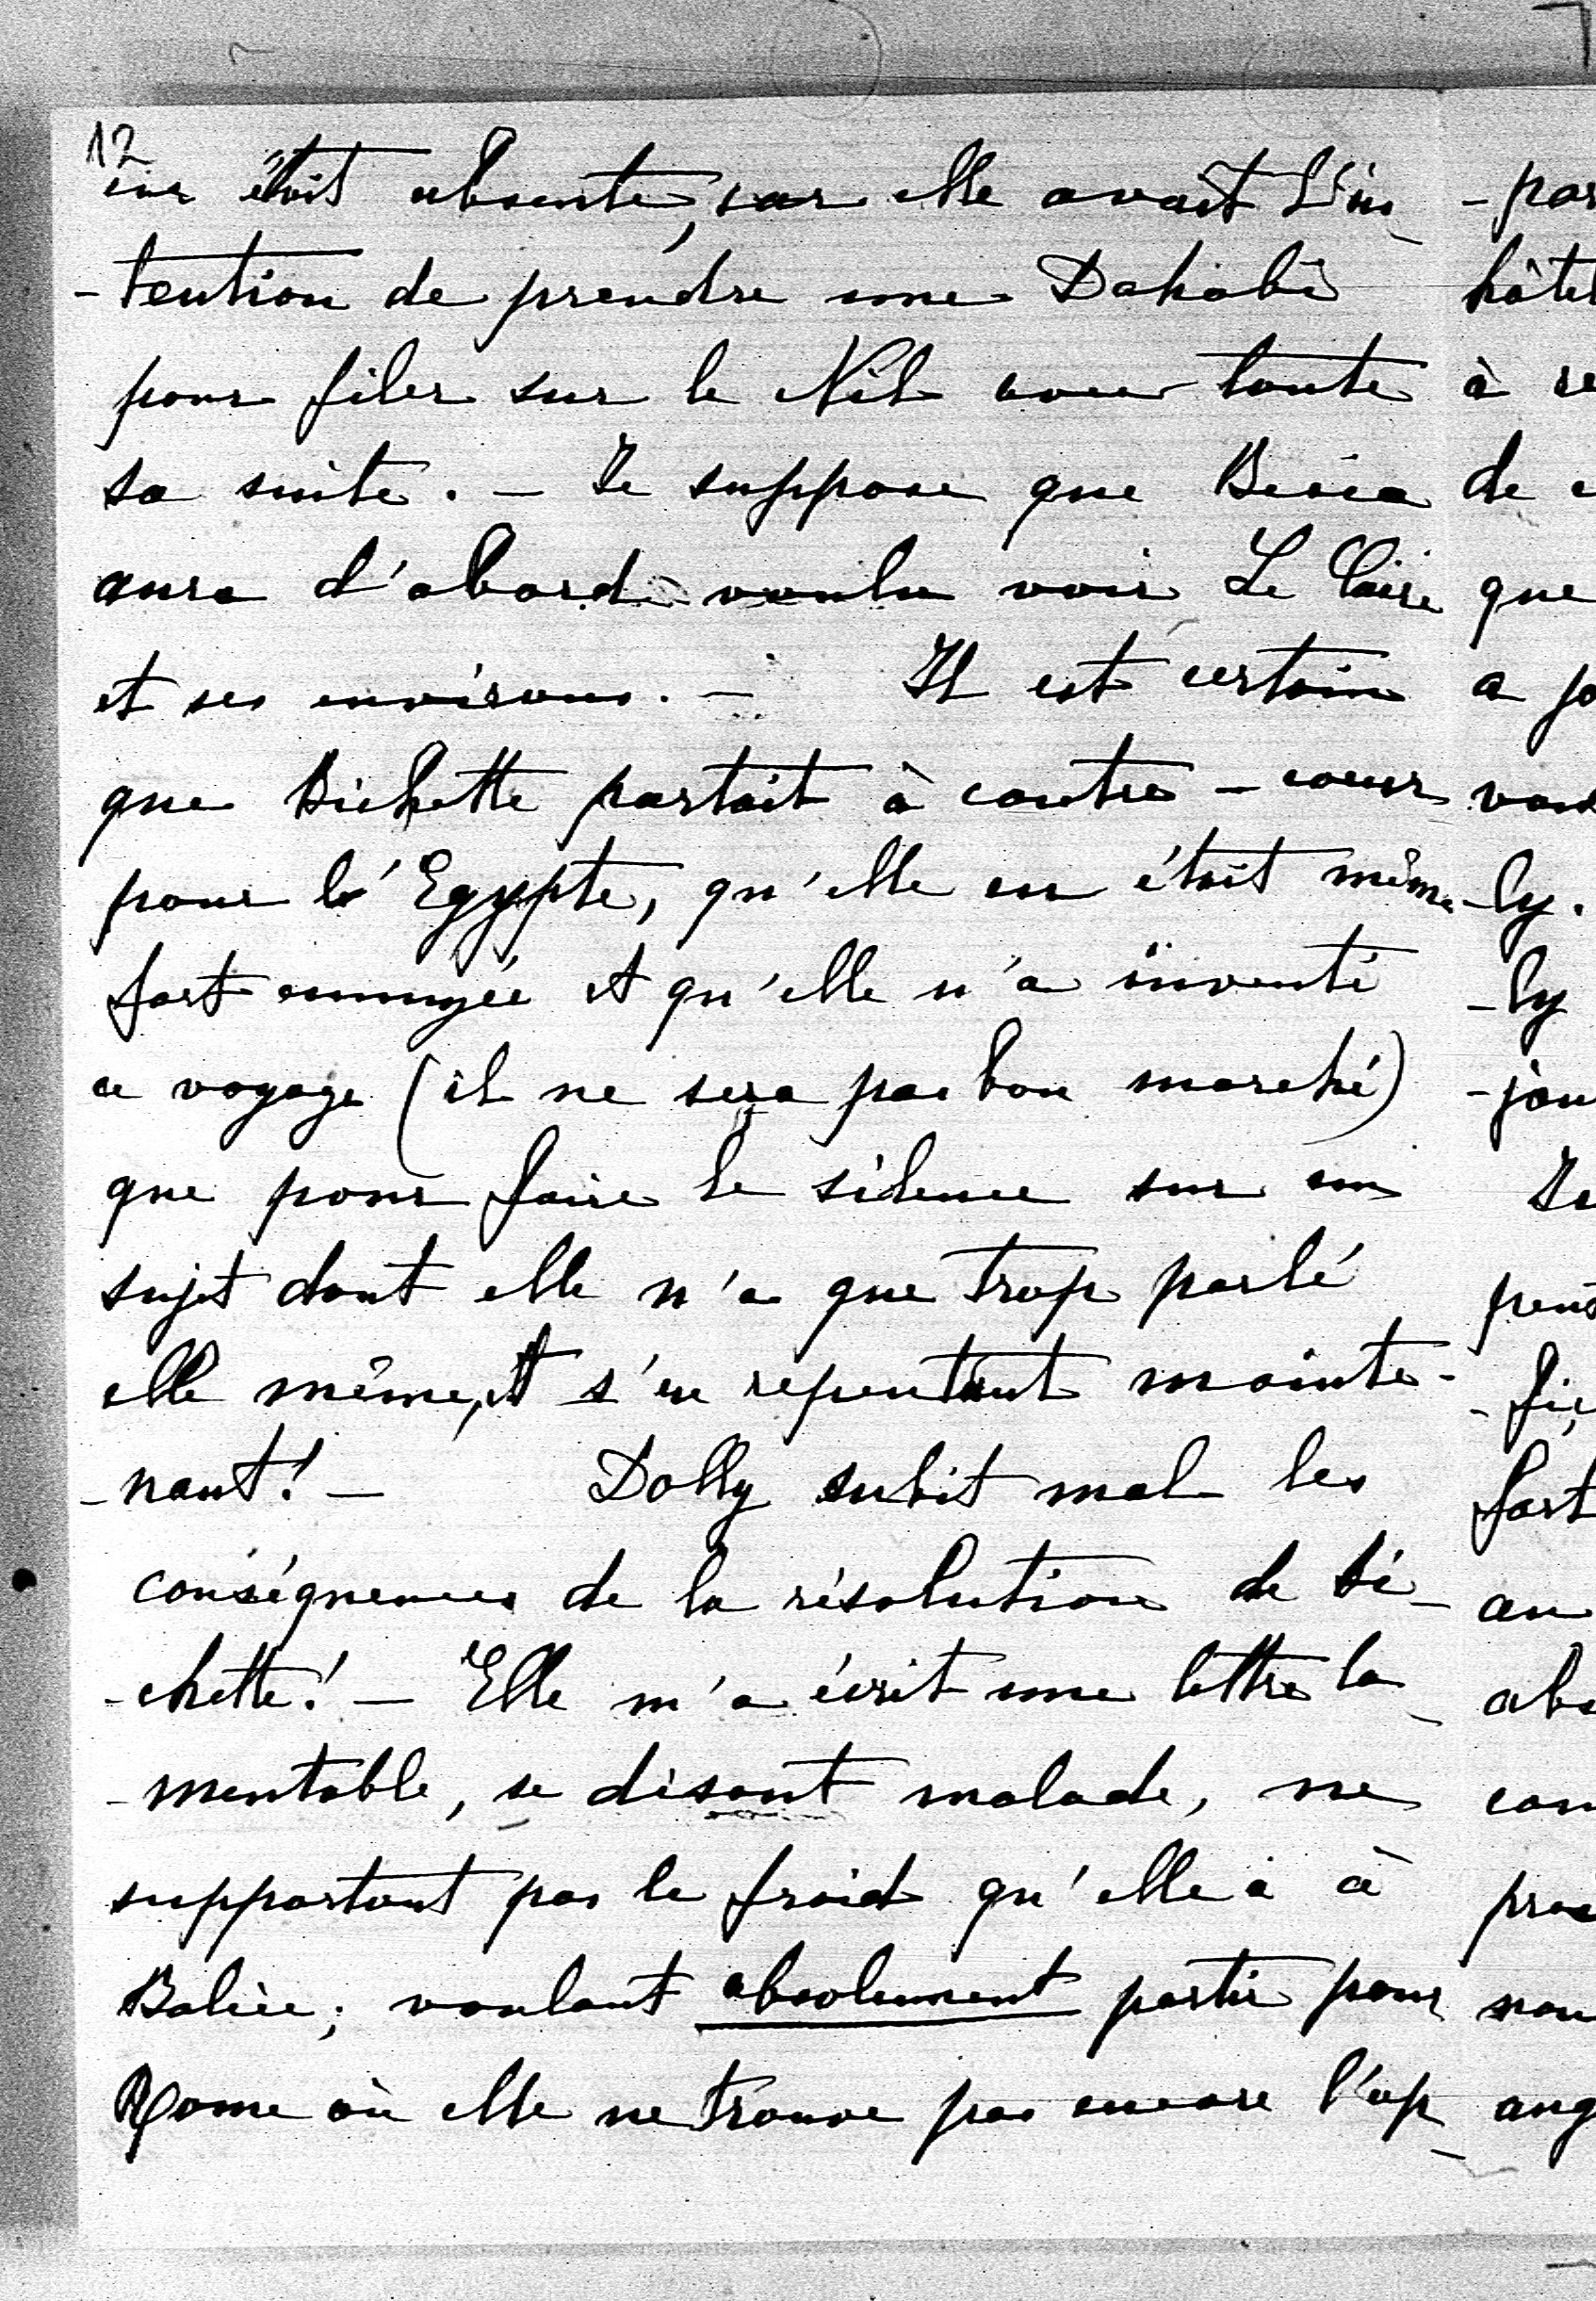 12
était absente, car elle avait l'in-
-tention de prendre une Dahabi
pour filer sur le Nil avec toute
sa suite. - Je suppose que
aura d'abord voulu voir Le Caire
et ses environs. - Il est certain
que Bichette partait à contre-coeur
pour l'Egypte, qu'elle en était même
fort ennuyée et qu'elle n'a inventé
ce voyage (il ne sera pas bon marché)
que pour faire le silence sur un
sujet dont elle n'a que trop parlé
elle même, et s'en repentant mainte-
-nant! - Dolly subit mal les
conséquences de la résolution de Bi-
-chette! - Elle m'a écrit une lettre la-
-mentable, se disant malade, ne
supportant pas le froid qu'elle a à
voulant absolument partir pour
Rome où elle ne trouve pas encore l'ap-
hôtel
que
-ly.
-ly